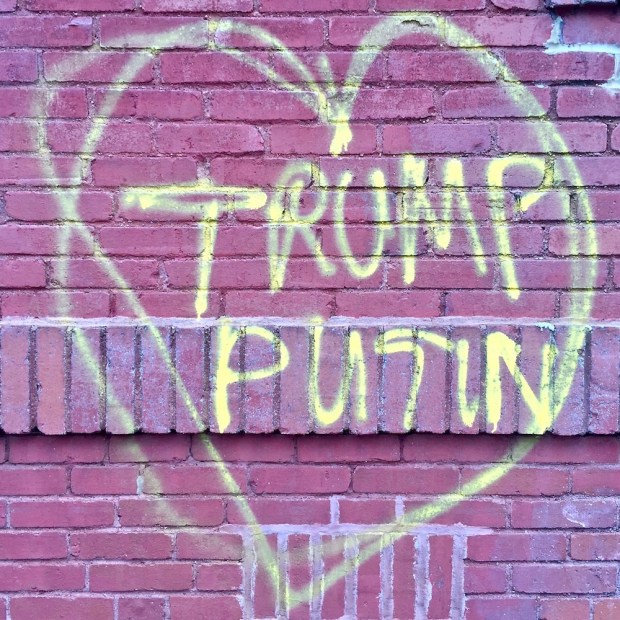 TRUMP
PUTIN